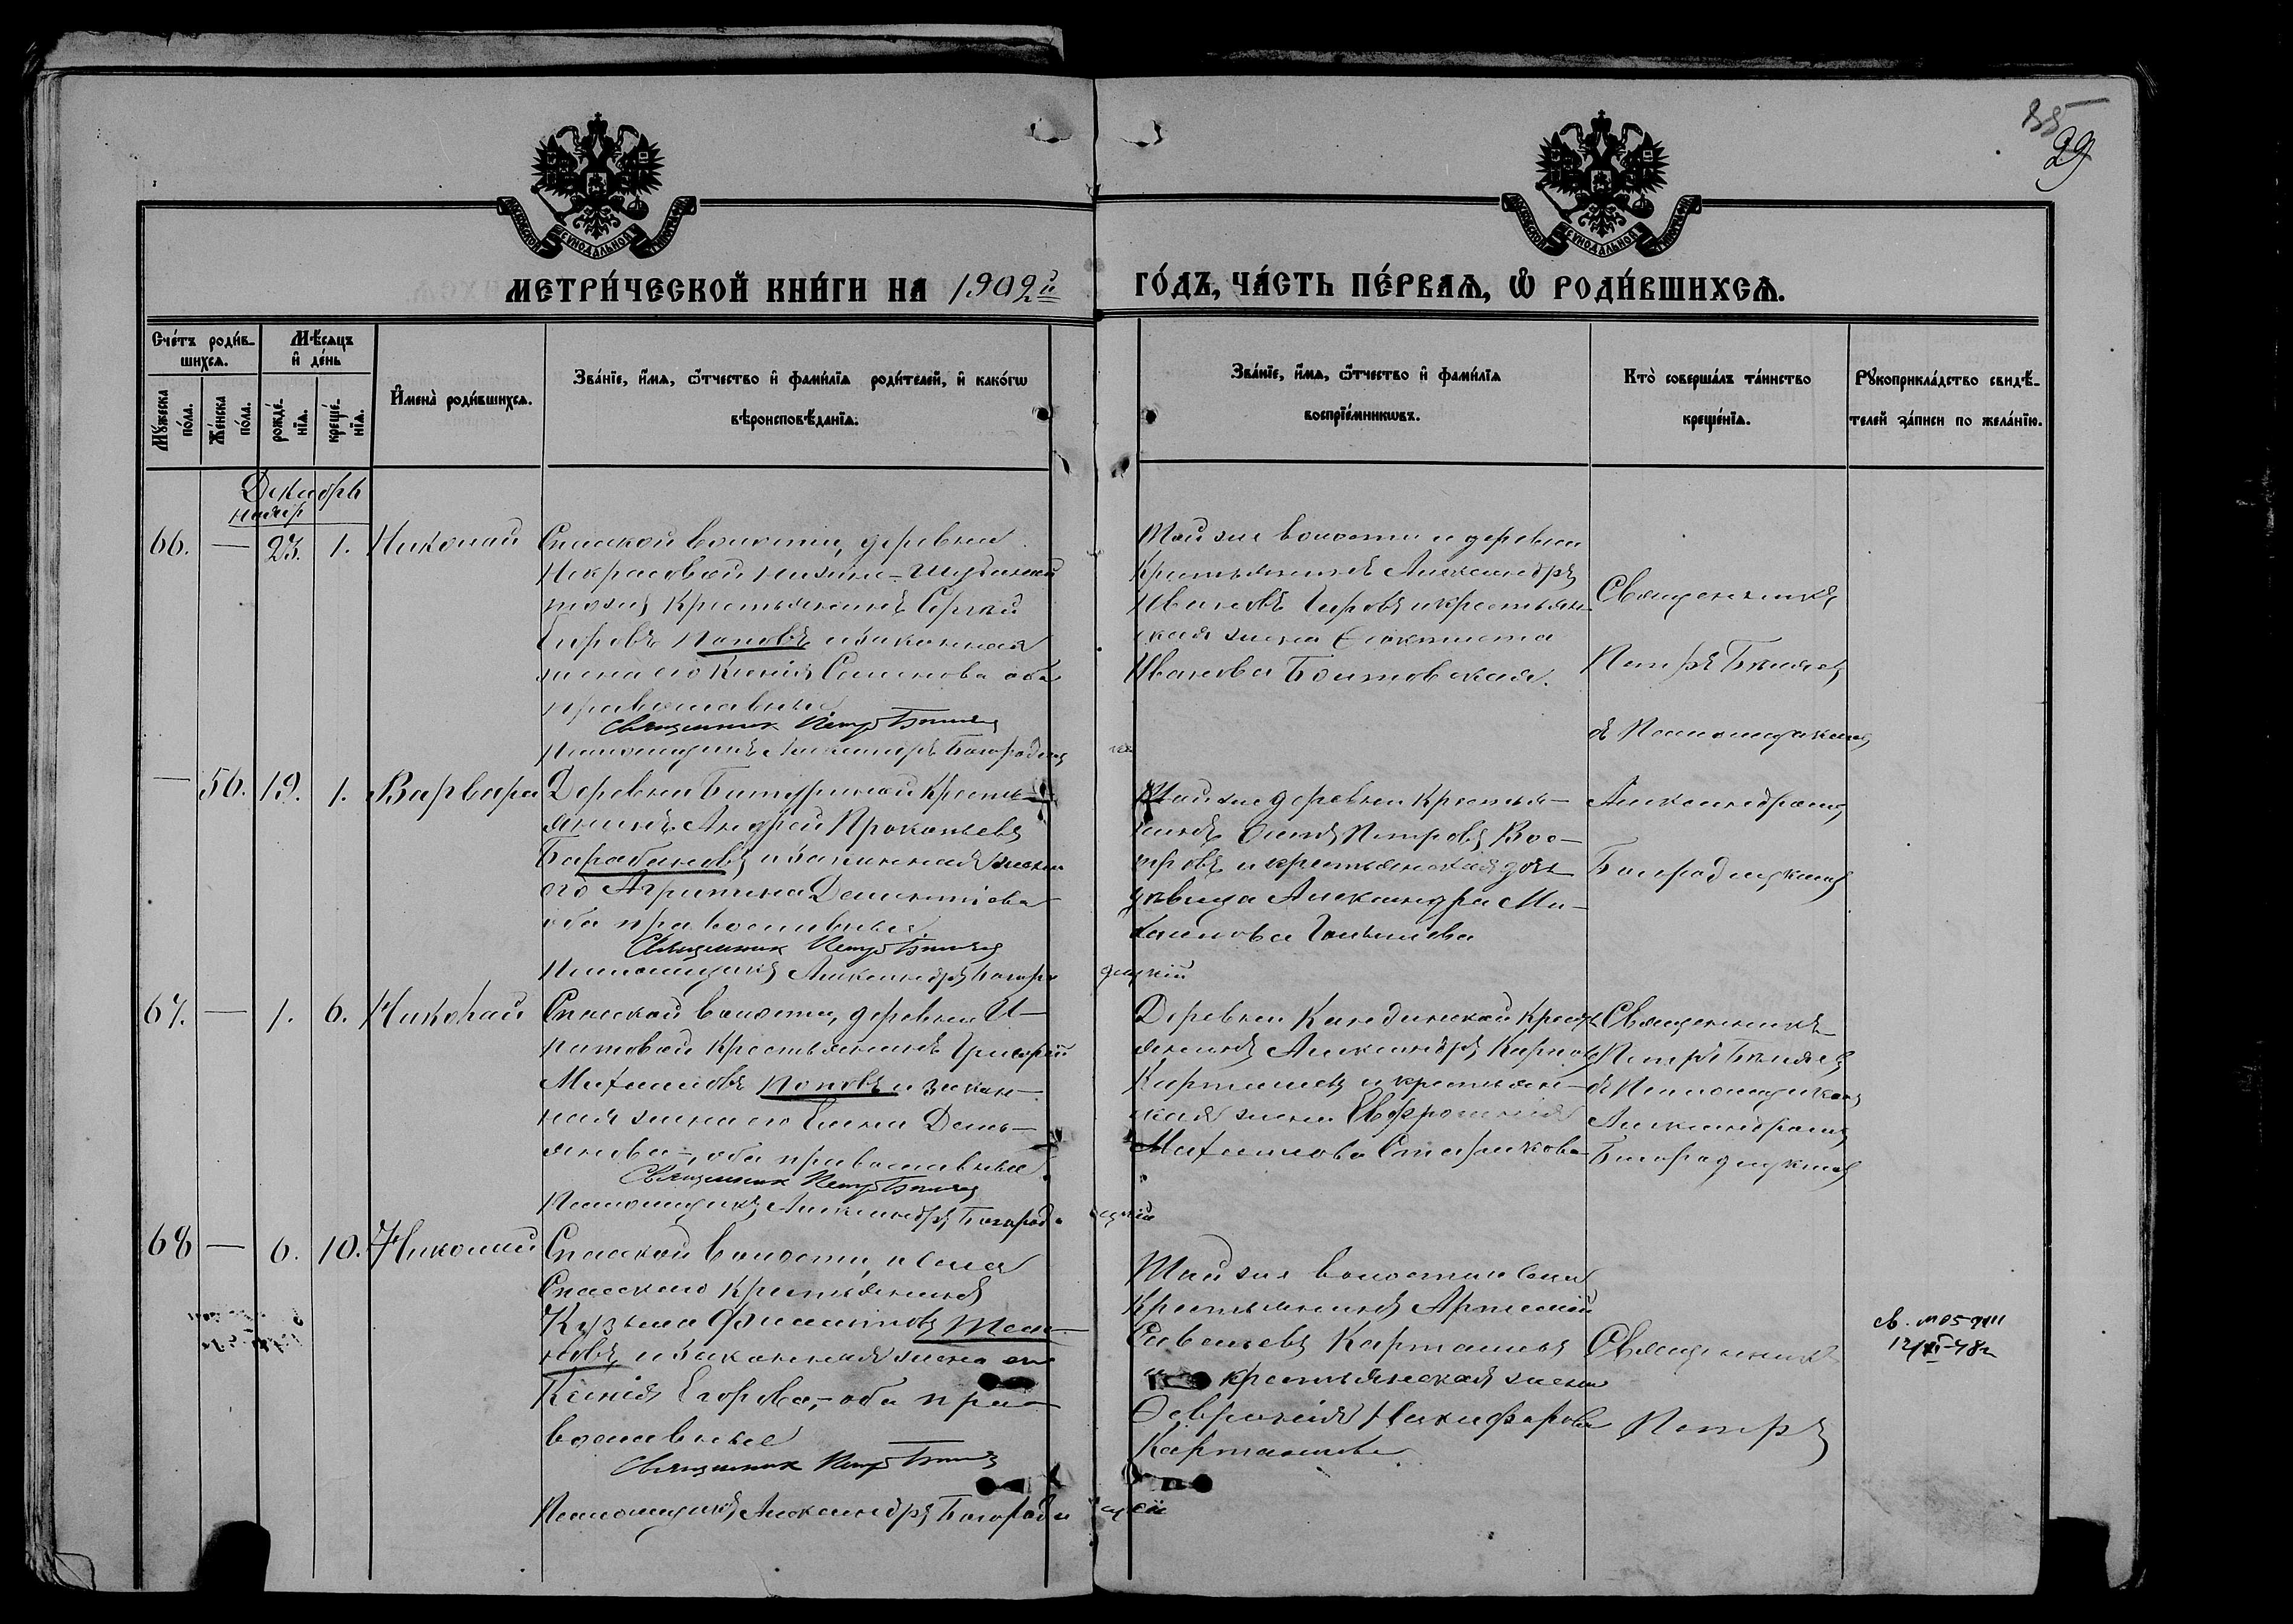 55
29
МОСКОВСКОЙ СѴНОДАЛЬНОЙ ТИПОГРАФІИ
МОСКОВСКОЙ СѴНОДАЛЬНОЙ ТИПОГРАФІИ
МЕТРИ́ЧЕСКОЙ КНИ́ГИ НА 1902й
ГО́ДЪ, ЧА́СТЬ ПЕ́РВАѦ, Ѽ РОДИ́ВШИХСѦ.
Сче́тъ роди́в-
шихсѧ.
Мѣ́сѧцъ
и҆ де́нь
Мꙋ́жеска
по́ла.
Же́нска
по́ла.
рожде́-
нїѧ.
креще́-
нїѧ.
И҆мена̀ роди́вшихсѧ.
Зва́нїе, и҆́мѧ, ѻ҆́тчество и҆ фами́лїѧ роди́телей, и҆ како́гѡ
вѣроисповѣ́данїѧ.
Зва́нїе, и҆́мѧ, ѻ҆́тчество и҆ фами́лїѧ
воспрїе́мникѡвъ.
Кто̀ соверша́лъ та́инство
креще́нїѧ.
Рꙋкоприкла́дство свидѣ́-
телей за́писи по жела́нїю.
Декабрь
ноябр
66. — 23. 1. Николай
Спасской волости, деревни
Некрасовой
тожъ крестьянинъ Сергѣй
Егоровъ Поповъ и законная
жена его Ксенія Семенова оба
православные
Священникъ Петръ Бѣляевъ
Псаломщикъ Александръ Богородицкій
Той же волости и деревни
крестьянинъ Александръ
Ивановъ и крестьян-
ская жена Ѳеоктиста
Иванова
Священникъ
Петръ Бѣляевъ
съ Псаломщикомъ
Александромъ
Богородицкимъ
— 56. 19. 1. Варвара
Деревни крестья-
янинъ Андрей Прокопьевъ
Барабановъ и законная жена
его Агрипина Дементіева
оба православные.
Священникъ Петръ Бѣляевъ
Псаломщикъ Александръ Богоро
дицкій
Той же деревни крестья-
нинъ Петровъ Вос-
тровъ и крестьянская дочь
дѣвица Александра Ми-
хаилова
67. — 1. 6. Николай
Спасской волости, деревни И-
патовой крестьянинъ Григорій
Михаиловъ Поповъ и закон-
ная жена его Елена Демь-
янова, оба православные.
Священникъ Петръ Бѣляевъ
Псаломщикъ Александръ Богороди
цкій
Деревни крест
янинъ Александръ Карповъ
Карташевъ и крестьян-
ская жена Евфросинія
Михаилова Старикова
Священникъ
Петръ Бѣляевъ
съ Псаломщикомъ
Александромъ
Богородицкимъ
68 — 6. 10. Николай
Спасской волости, и села
Спасскаго крестьянинъ
Кузьма Филиповъ
новъ и законная жена его
Ксенія Егорова, оба пра-
вославные
Священникъ Петръ Бѣляевъ
Псаломщикъ Александръ Богороди
цкій
Той же волости и села
крестьянинъ Артемій
Савельевъ Карташевъ
и крестьянская жена
Февронія Никифорова
Карташева
Священникъ
Петръ